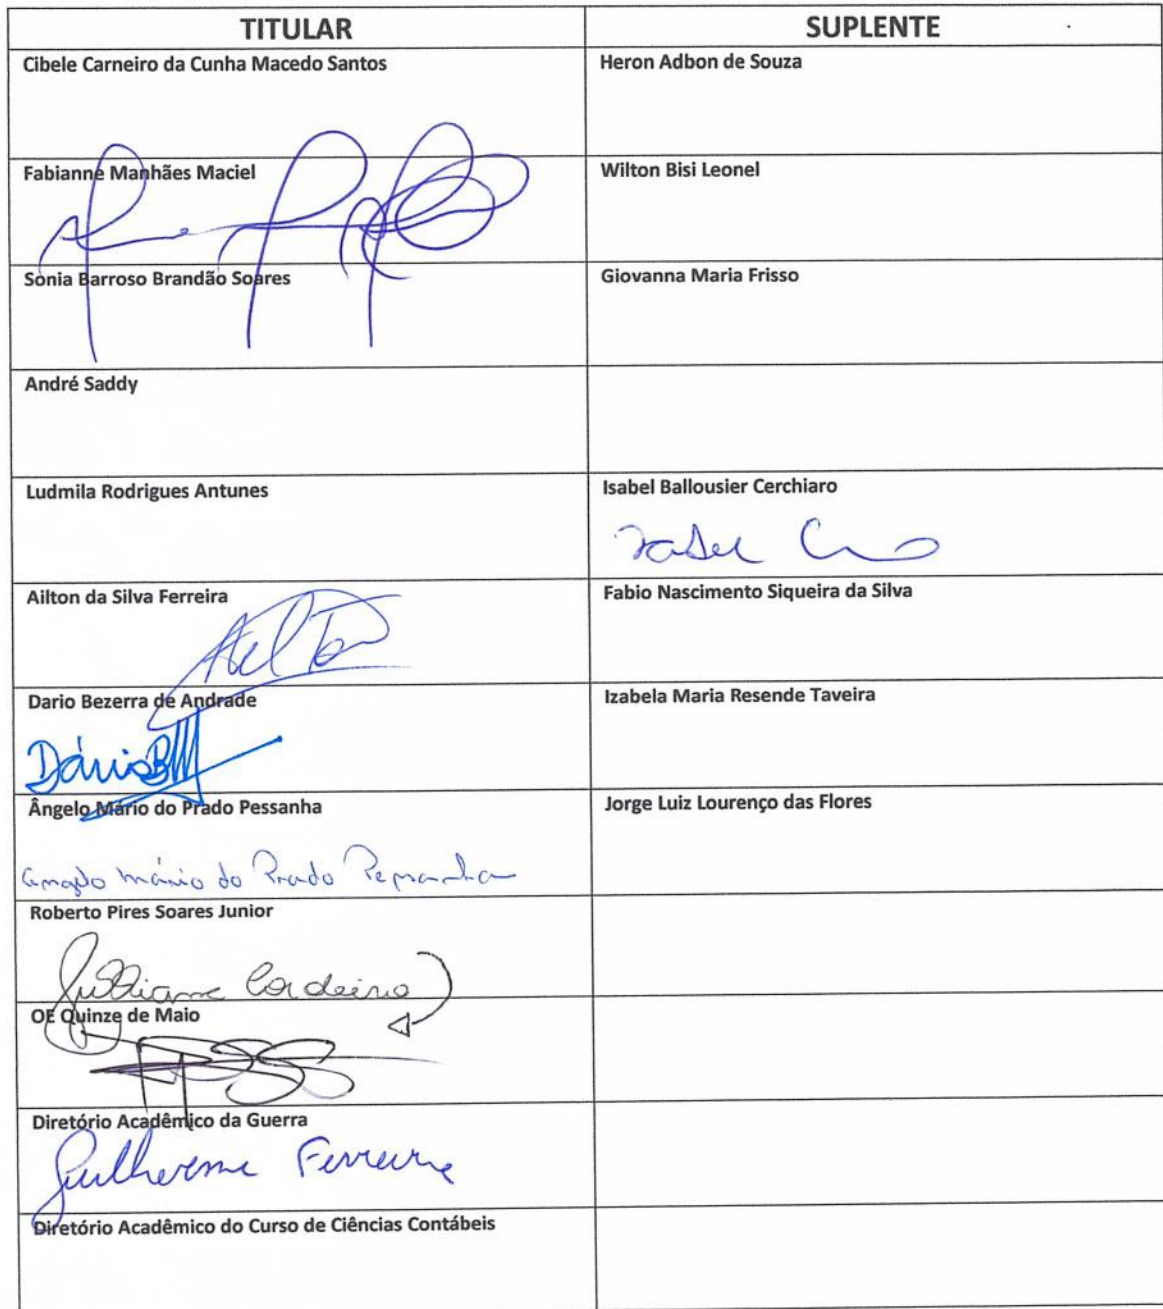 TITULAR SUPLENTE
Cibele Carneiro da Cunha Macedo Santos Heron Adbon de Souza
Fabianne Manhães Maciel Wilton Bisi Leonel
Sônia Barroso Brandão Soares Giovanna Maria Frisso
André Saddy
Ludmila Rodrigues Antunes Isabel Ballousier Cerchiaro
Isabel
Ailton da Silva Ferreira Fabio Nascimento Siqueira da Silva
Ailton
Dario Bezerra de Andrade Izabela Maria Resende Taveira
Dário
Ângelo Mário do Prado Pessanha Jorge Luiz Lourenço das Flores
Angelo Mário do Prado Pessanha
Roberto Pires Soares Junior
Julliane Cordeiro
OE Quinze de Maio
Diretório Acadêmico da Guerra
Guilherme Ferreira
Diretório Acadêmico do Curso de Ciências Contábeis